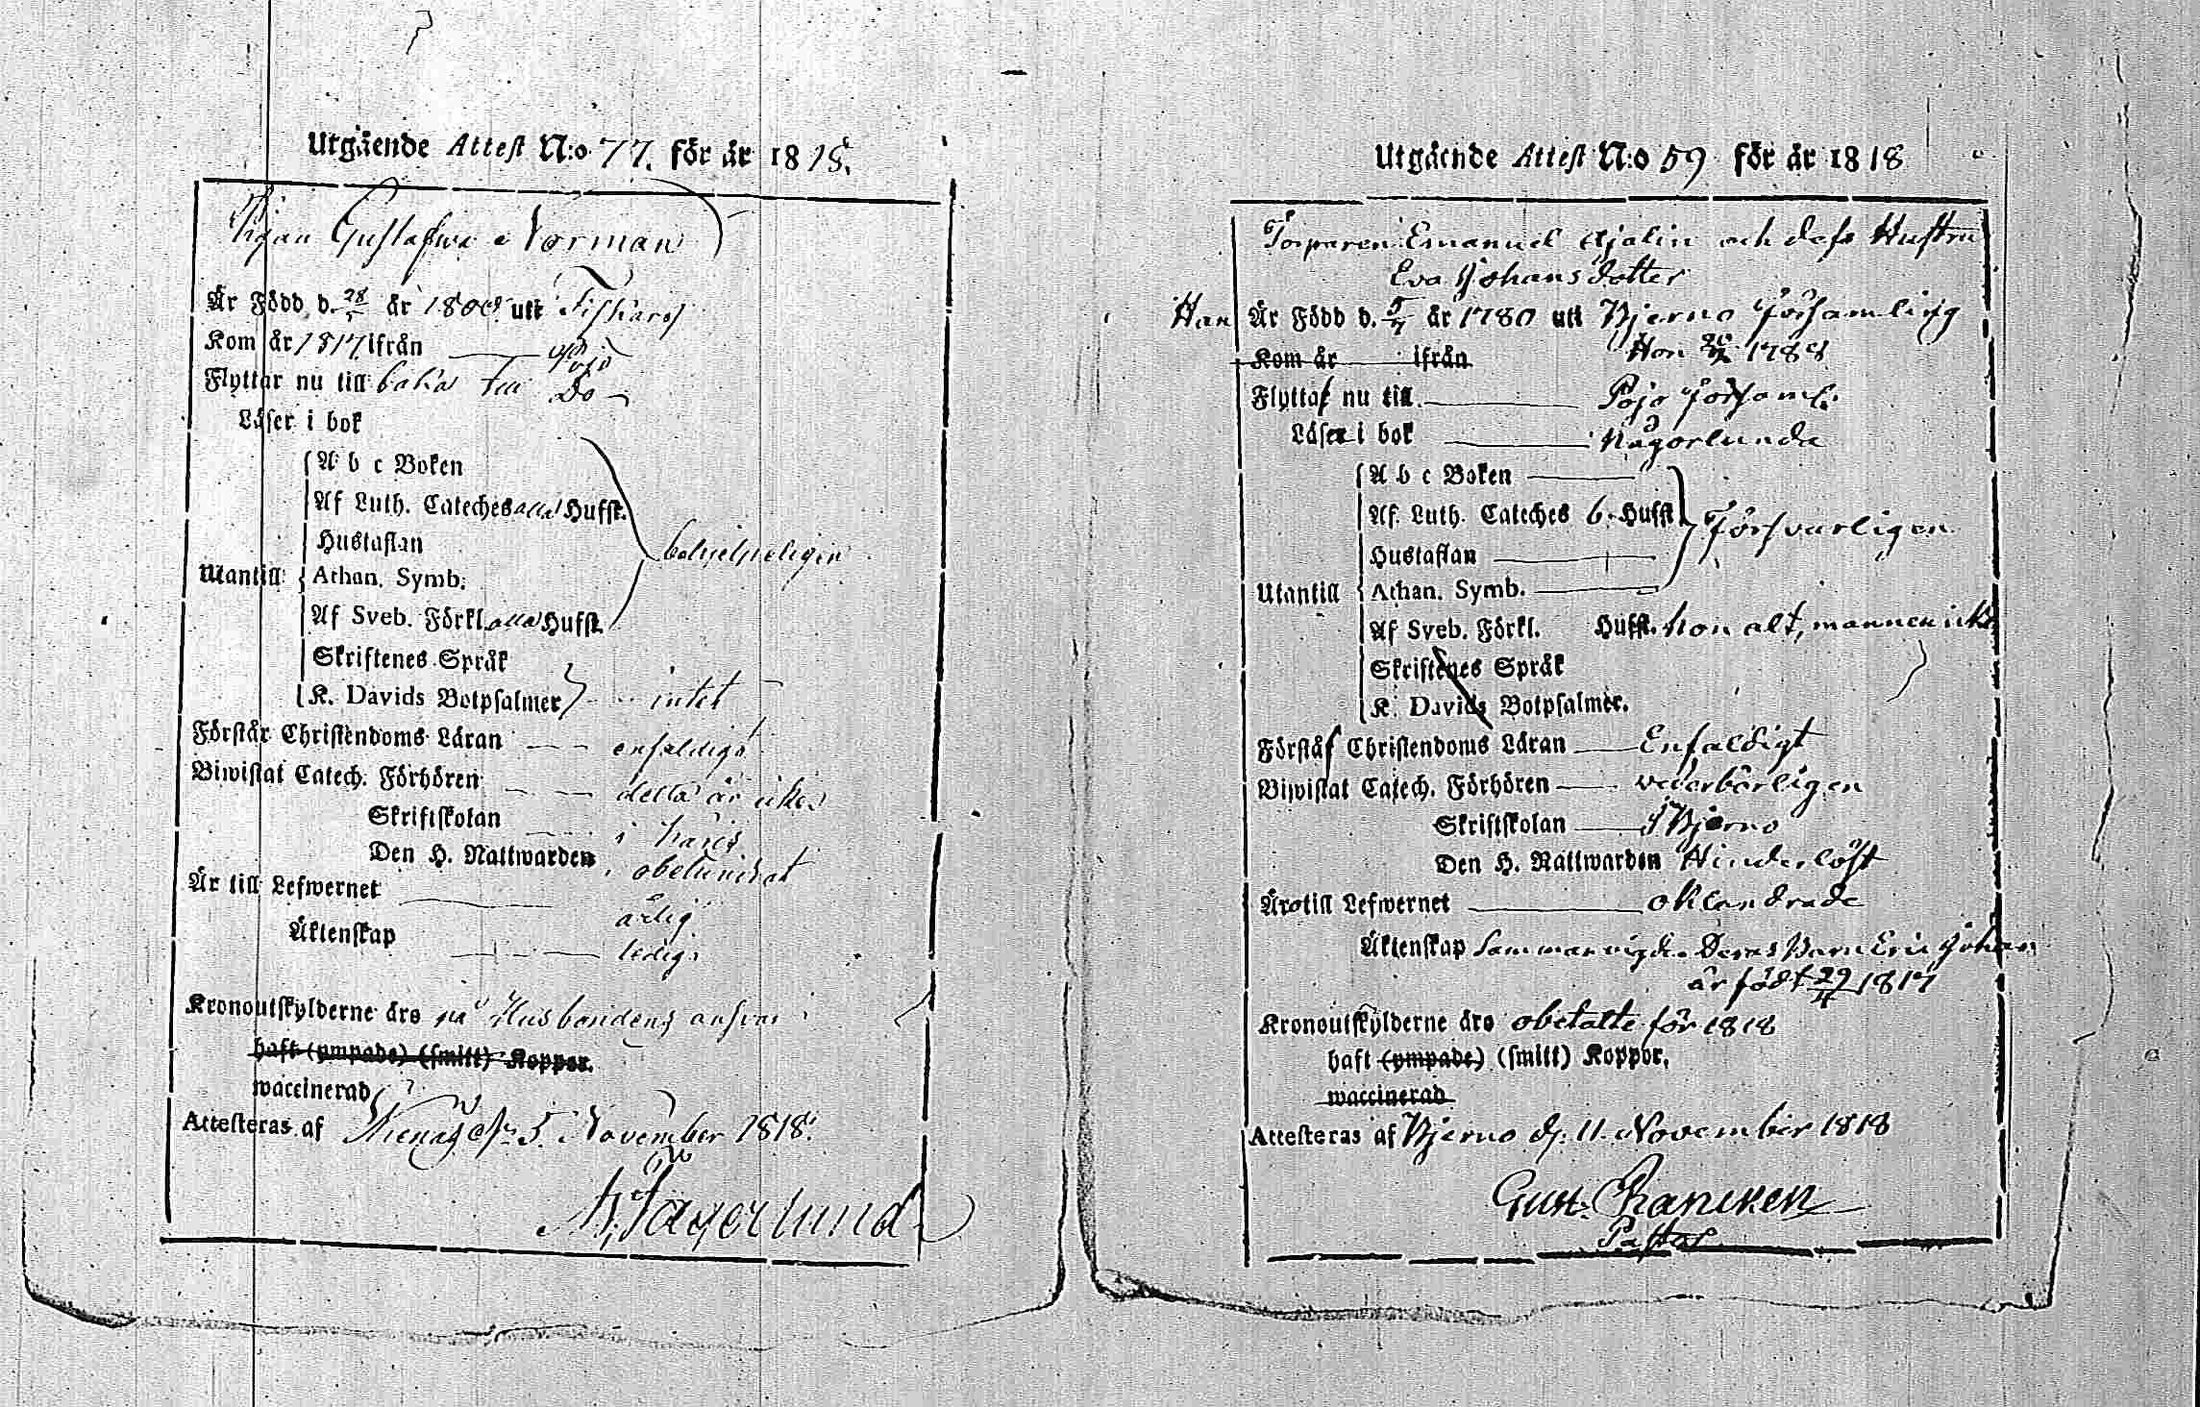 Utgående Attest N:o 77. för år 1818.
Pigan Gustafwa Norman
Är Född d. 28 år 180 uti Fiskars
Kom år 1817 ifrån Pojo
Flyttar nu till baka till Do
Läser i bok
A b c Boken
Af Luth. Cateches alla Hufst.
Hustaflan
behjelpeligen
Utantill Athan. Symb.
Af Sveb. Förkl. alla Hufst.
Skriftenes Språk
K. Davids Botpsalmer intet
Förstår Christendoms Läran enfaldigt
Biwistat Catech. Förhören detta år icke
Skriftskolan i
Den H. Nattwarden
Är till Lefwernet ärlig
Äktenskap ledig.
Kronoutskylderne äro på Husbondens ansvar
haft (ympade) (smitt) Koppor.
waccinerad
Attesteras af d. 5 November 1818.
Utgående Attest N:o 59 för år 1818
Torparen Emanuel Hjalin och dess Hustru
Eva Johansdotter
Han Är Född d. 5 år 1780 uti Bjerno Församling
Kom år ifrån Hon 1788
Flyttar nu till Pojo Församl.
Läser i bok Någorlunda
A b c Boken
Af Luth. Cateches 6. Hufst.
Försvarligen
Hustaflan
Utantill Athan. Symb.
Af Sveb. Förkl. Hufst. hon alt, mannen icke
Skriftenes Språk
K. Davids Botpsalmer.
Förstå Christendoms Läran Enfaldigt
Biwistat Catech. Förhören vederbörligen
Skriftskolan i Bjerno
Den H. Nattwarden Hinderlöst
Äro till Lefwernet oklandrade
Äktenskap Sammanvigde. Deras Barn Eric Johan
är född 29/4 1817
Kronoutskylderne äro obetalte för 1818
haft (ympade) (smitt) Koppor.
waccinerad
Attesteras af Bjerno d. 11. November 1818
Gust. Rancken
Pastor